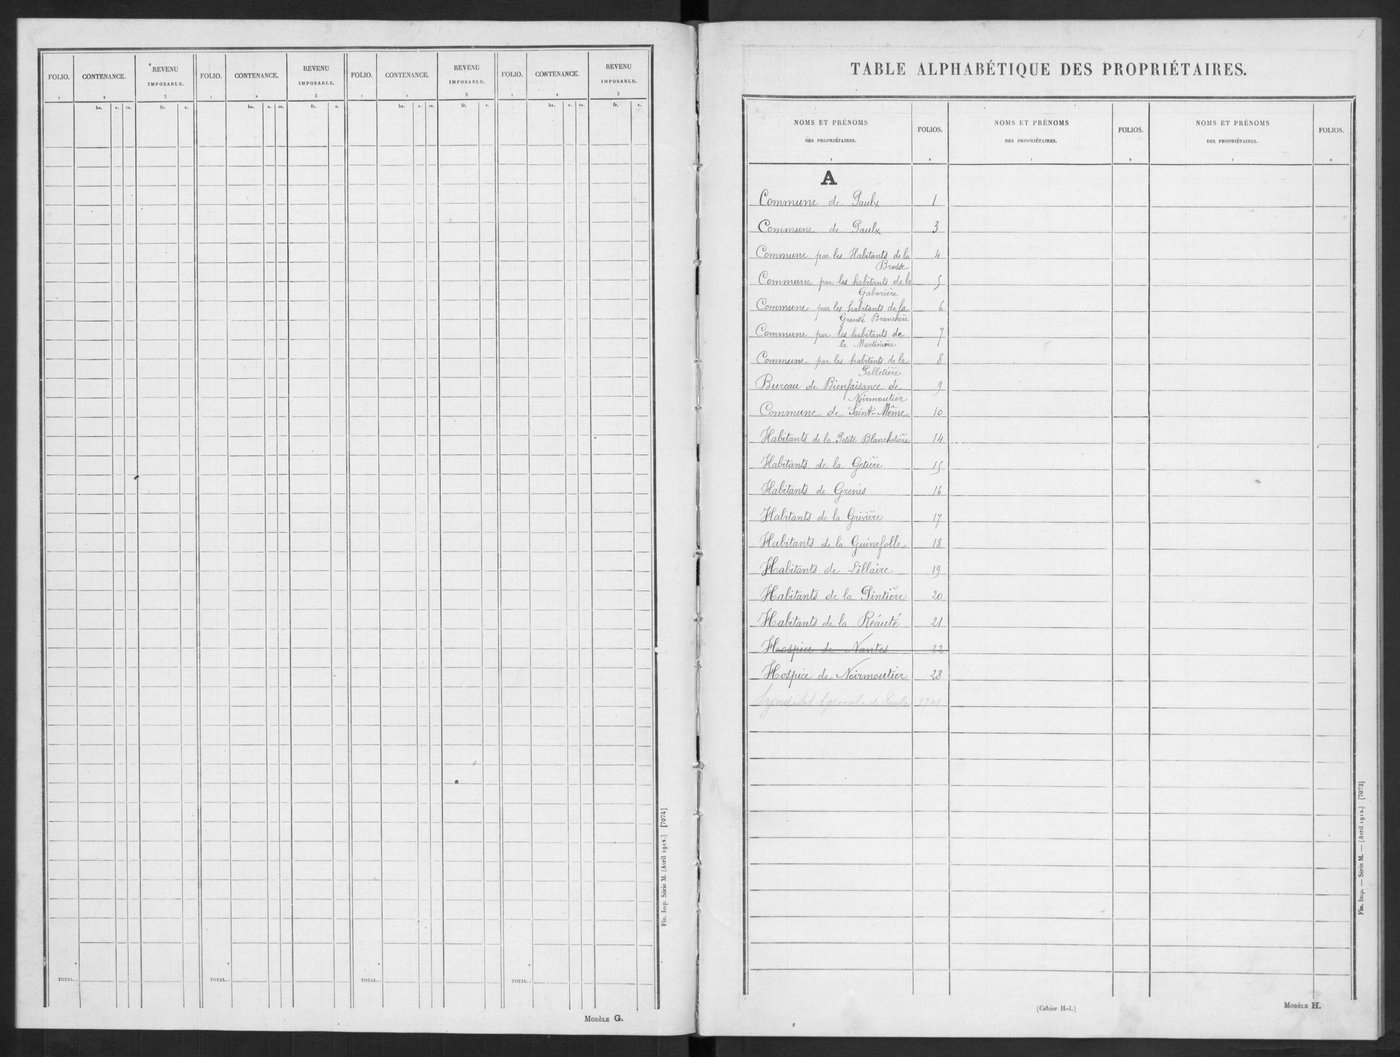 FOLIO. CONTENANCE. REVENU IMPOSABLE. FOLIO. CONTENANCE. REVENU IMPOSABLE. FOLIO. CONTENANCE. REVENU IMPOSABLE. FOLIO. CONTENANCE. REVENU IMPOSABLE.
1 2 3 1 2 3 1 2 3 1 2 3
ha. a. ca. fr. c. ha. a. ca. fr. c. ha. a. ca. fr. c. ha. a. ca. fr. c.
TOTAL. TOTAL. TOTAL. TOTAL.
Modèle G.
Fin. Imp. Série M. (Avril 1912.) [7074]
TABLE ALPHABÉTIQUE DES PROPRIÉTAIRES.
NOMS ET PRÉNOMS DES PROPRIÉTAIRES. FOLIOS. NOMS ET PRÉNOMS DES PROPRIÉTAIRES. FOLIOS. NOMS ET PRÉNOMS DES PROPRIÉTAIRES. FOLIOS.
1 2 1 2 1 2
A
Commune de Paulx 1
Commune de Paulx 3
Commune par les Habitants de la 4
Brosse
Commune par les habitants de la 5
Gaborière
Commune par les habitants de la 6
Grande
Commune par les habitants de 7
la Martinière
Commune par les habitants de la 8
Palletière
Bureau de Bienfaisance de 9
Noirmoutier
Commune de Saint-Même 10
Habitants de la Petite 14
Habitants de la Getière 15
Habitants de Grenis 16
Habitants de la Grivière 17
Habitants de la Guinefolle 18
Habitants de Lillaire 19
Habitants de la Pintière 20
Habitants de la Réauté 21
Hospice de Nantes 22
Hospice de Noirmoutier 23
Syndicat Agricole de Paulx
(Cahier H-1.)
Modèle H.
Fin. Imp. — Série M. — (Avril 1912.) [7073]